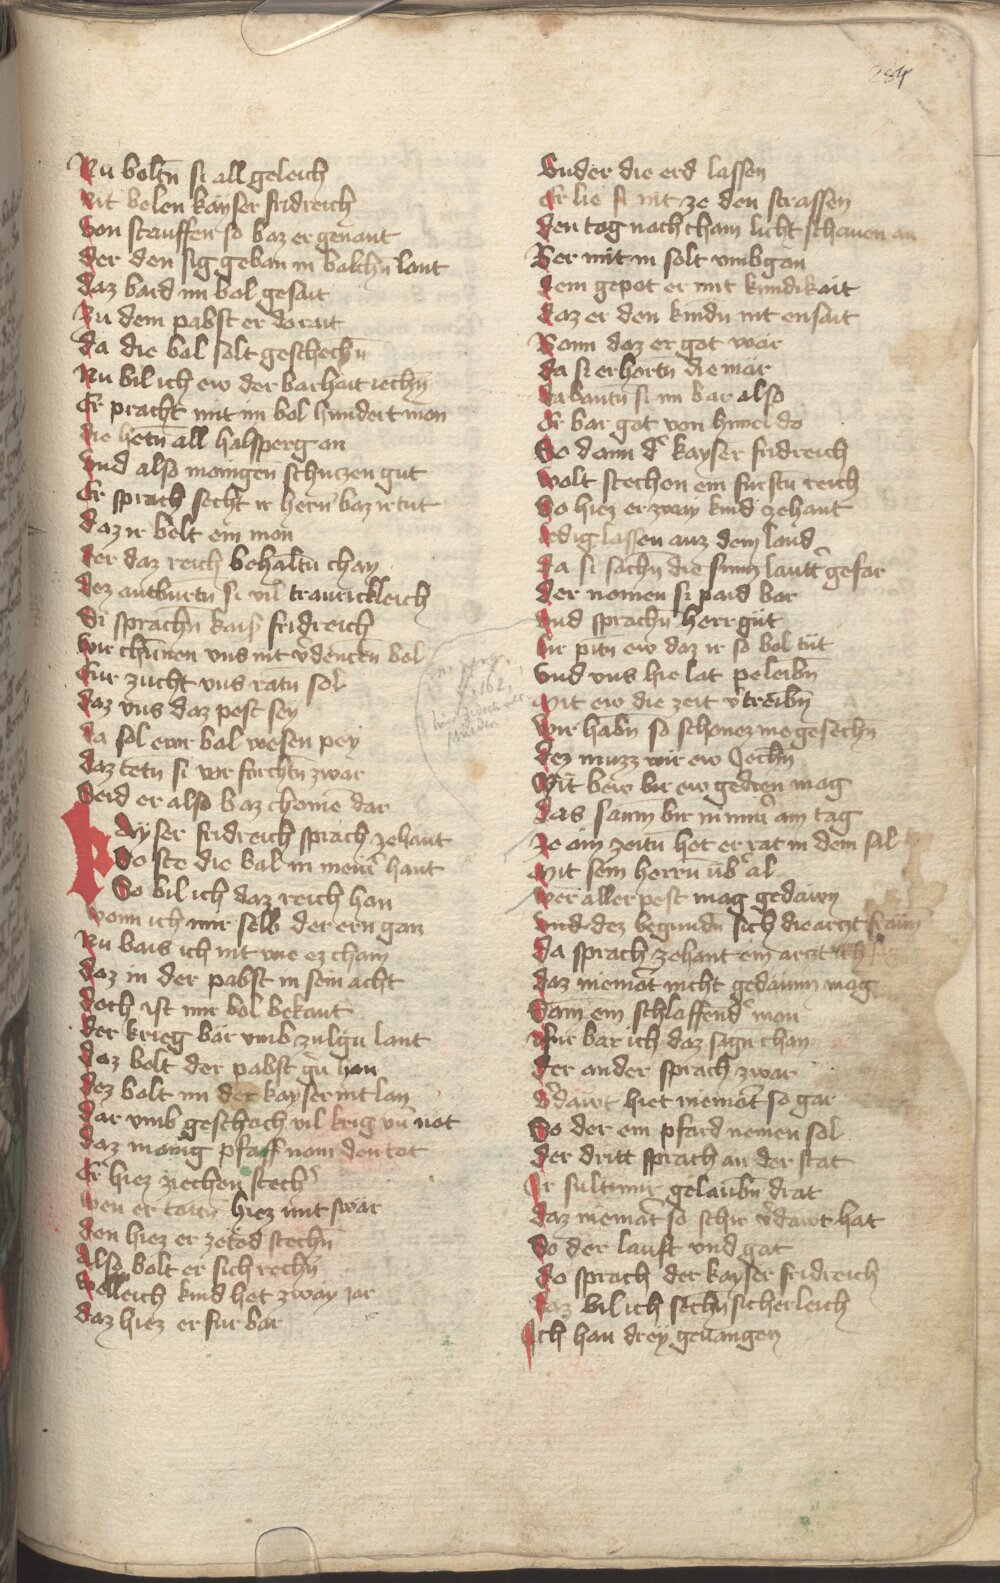 284
Nu boltn si all geleich
Nit belen kayser fridreich
Von stauffen so baz er genant
der den sig geban in balchn lant
daz bard im bol gesait
Zu dem pabst er do rait
da die bal solt geschechn
Nu bil ich ew der barhait iechn
Er pracht mit im bol hundert man
die hetn all halsperg an
Vnd also manigen schuczen gut
Er sprach secht ir hern baz ir tut
daz ir belt ein man
der daz reich behaltn chan
dez antburtn si vil traurickleich
Si sprachn kaiser fridreich
Wir chunnen vns nit vdencken bol
Eur zucht vns ratn sol
daz vns daz pest sey
da sol ewr bal wesen pey
daz tetn si vor forchtn zwar
Seid er also baz chomē dar
Kayser fridreich sprach zehant
So ste die bal in meinr hant
So bil ich daz reich han
Vonn ich mir selb der ern gan
Nu bais ich nit wie ez cham
daz in der pabst in sein acht
doch ist mir bol bekant
der krieg bar vmb zulgn lant
daz bolt der pabst gn han
dez bolt im der kayser nit lan
dar vmb geschach vil krig vn not
daz manig pfaff nam den tot
Er hiez ziechen stech
ben er tatn hiez mit swar
den hiez er ze tod stechn
Also bolt er sich rechn
Welleich kind het zway iar
daz hiez er fur bar
Vnder die erd lassen
Er lie si nit ze den strassen
den tag nach cham licht schauen an
Ber mit in solt vmbgan
dem gepot er mit kundikait
daz er den kindn nit ensait
Bann daz er got wär
da si erhortn die mär
da bantn si im bar also
Er bar got von himel do
So dann der kayser fridreich
Wolt stechen ein furstn reich
So hiez er zway kind zehant
ledig lassen auz dem land
da si sachn die sunn lautter gefar
der namen si paid bar
Vnd sprachn herr güt
Wir pitn ew daz ir so bol tüt
Vnd vns hie lat peleibn
Mit ew die zeit vtreibn
Wir habn so schonez nie gesechn
dez muzz wir ew Jechn
Mit bew bir ew gedien mag
das saum bir nimmer am tag
Ze ain zeitn het er rat in dem sal
Mit sein herrn üb al
Wer aller pest mag gedawn
Vnd dez begundn sich die arczt fraun
da sprach zehant ein arczt
daz niemant nicht gedaunn mag
Dann ein schlaffend man
fur bar ich daz sagn chan
der ander sprach zwar
Vdawt hiet niemant so gar
So der ein pfard nemen sol
der dritt sprach an der stat
Ir sult mir gelaubn drat
daz niemant so schir vdawt hat
So der lauft vnd gat
do sprach der kayser fridreich
daz bil ich sechn sicherleich
Ich han drey geuangen